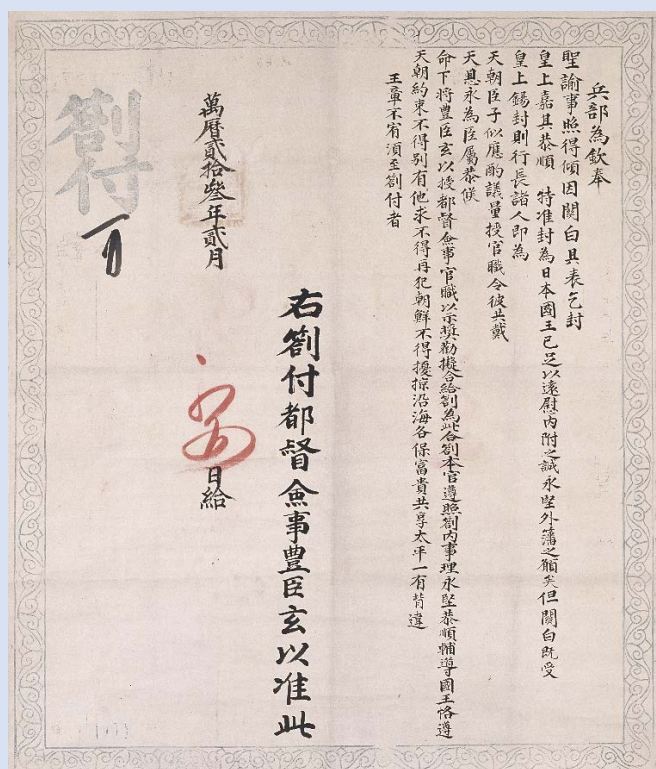 兵部為欽奉
聖諭事照得頃因關白具表乞封
皇上嘉其恭順 特准封為日本國王已足以遠慰內附之誠永堅外藩之願矣但關白既受
皇上錫封則行長諸人即為
天朝臣子似應酌議量授官職令彼共戴
天恩永為臣屬恭候
命下將豊臣玄以授都督僉事官職以示奬勸擬合給劄為此合劄本官遵照劄內事理永堅恭順輔導國王恪遵
天朝約束不得別有他求不得再犯朝鮮不得擾掠沿海各保富貴共享太平一有背違
王章不宥須至劄付者
右劄付都督僉事豊臣玄以准此
萬曆貳拾叁年貳月 日給
劄付